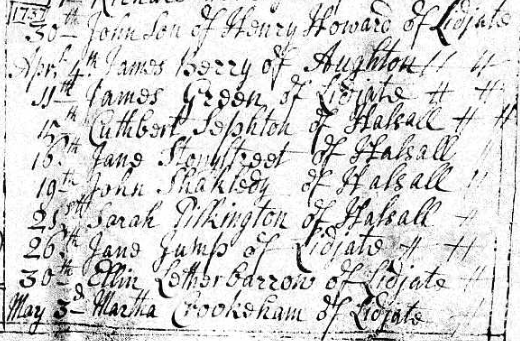 1757
30th John Son of Henry Howard of Lidjate
Aprl 4th James Berry of Aughton
11th James Green of Lidjate
15th Cuthbert Sephton of Halsall
16th Jane Stonstreet of Halsall
19th John Shakledy of Halsall
21st Sarah Pilkington of Halsall
26th Jane Jump of Lidjate
30th Ellin Letherbarrow of Lidjate
May 3d Martha Crookeham of Lidjate